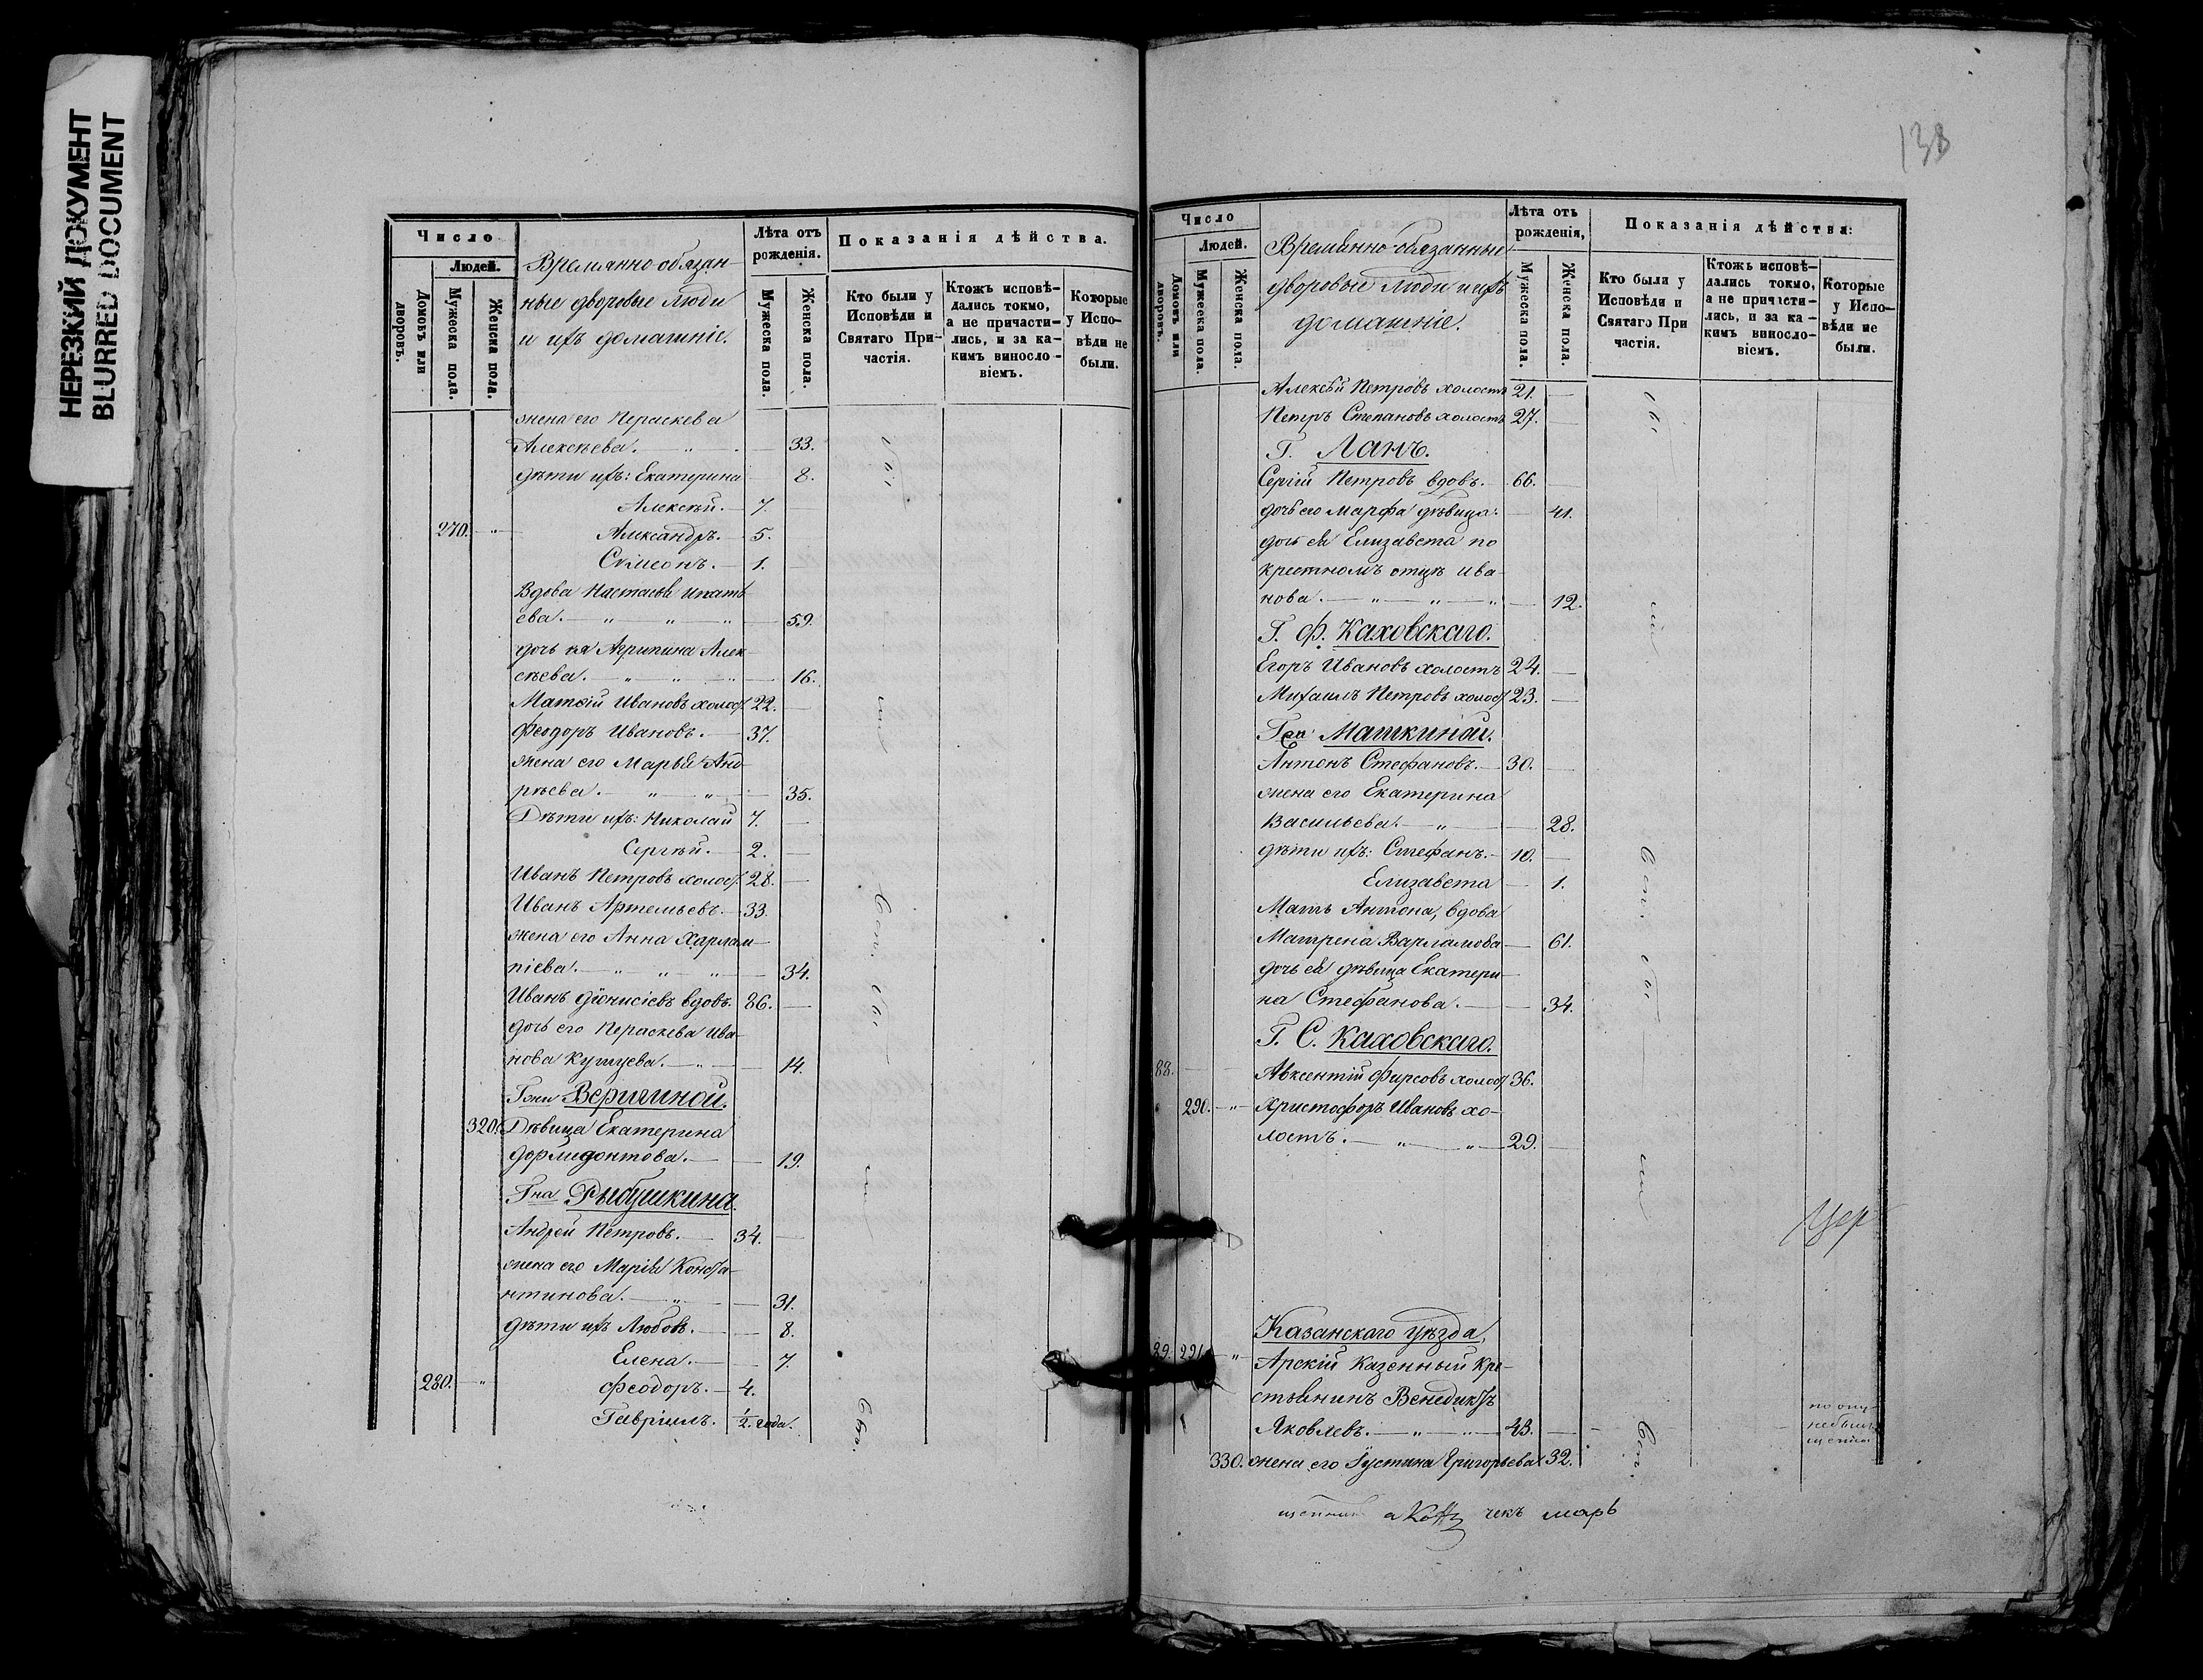 НЕРЕЗКИЙ ДОКУМЕНТ
BLURRED DOCUMENT
Число
Людей.
Домовъ или дворовъ.
Мужеска пола.
Женска пола.
Временно-обязан-
ные дворовые люди
и ихъ домашніе.
Лѣта отъ рожденія.
Мужеска пола.
Женска пола.
Показанія дѣйства.
Кто были у Исповѣди и Святаго При-частія.
Ктожъ исповѣ-дались токмо, а не причасти-лись, и за ка-кимъ винословіемъ.
Которые у Испо-вѣди не были.
жена его Пераскева
Алексѣева. 33.
дѣти ихъ: Екатерина 8.
Алексѣй. 7.
270. Александръ. 5.
Сѵмеонъ. 1.
Вдова Настасья Ипать
ева. 59.
дочь ея Агрипина Алек-
сѣева. 16.
Матѳій Ивановъ холост 22.
Феодоръ Ивановъ. 37.
жена его Марья Анд-
рѣева. 35.
Дѣти ихъ: Николай 7.
Сергѣй. 2.
Иванъ Петровъ холост. 28.
Иванъ Артемьевъ. 33.
жена его Анна Харлам-
піева. 34.
Иванъ Діонисіевъ вдовъ. 86.
дочь его Пераскева Ива-
нова 14.
Гжи Веригиной.
320. Дѣвица Екатерина
Дормидонтова. 19.
Гна Рыбушкина.
Андрей Петровъ. 34.
жена его Марія Конста-
нтинова. 31.
дѣти ихъ Любовь. 8.
Елена. 7.
280. Феодоръ. 4.
Гавріилъ. 1/2 года.
138
Число
Людей.
Домовъ или дворовъ.
Мужеска пола.
Женска пола.
Временно-обязанные
дворовые люди и ихъ
домашніе.
Лѣта отъ рожденія,
Мужеска пола.
Женска пола.
Показанія дѣйства:
Кто были у Исповѣди и Святаго При частія.
Ктожъ исповѣ-дались токмо, а не причасти-лись, и за ка-кимъ винословіемъ.
Которые у Испо-вѣди не были.
Алексѣй Петровъ холостъ 21.
Петръ Степановъ холостъ 27.
Г. Ланъ.
Сергій Петровъ вдовъ. 66.
дочь его Марфа дѣвица. 41.
дочь ея Елизавета по
крестномъ отцѣ Ива-
нова. 12.
Г. Ф. Каховскаго.
Егоръ Ивановъ холостъ 24.
Михаилъ Петровъ холост 23.
Машкиной.
Антонъ Стефановъ. 30.
жена его Екатерина
Васильева. 28.
дѣти ихъ: Стефанъ. 10.
Елизавета 1.
Мать Антона, вдова
Матрена Варламова 61.
дочь ея дѣвица Екатери-
на Стефанова. 34.
Г. С. Каховскаго.
88. Авксентій Фирсовъ холост 36.
290. Христофоръ Ивановъ хо-
лостъ. 29.
Казанскаго уѣзда,
89. 291. Арскій казенный кре-
стьянинъ Венедиктъ
Яковлевъ. 43.
330. жена его Іустина Григорьева 32.